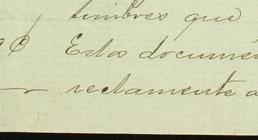 y timbres que
Estos documen
rectamente a